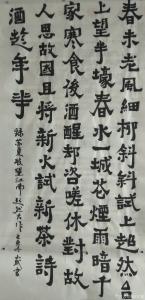 春未老風細柳斜斜試上超然臺
上望半壕春水一城花煙雨暗千
家寒食後酒醒却咨嗟休對故
人思故國且將新火試新茶詩
酒趁年華
蘇東坡望江南超然臺作